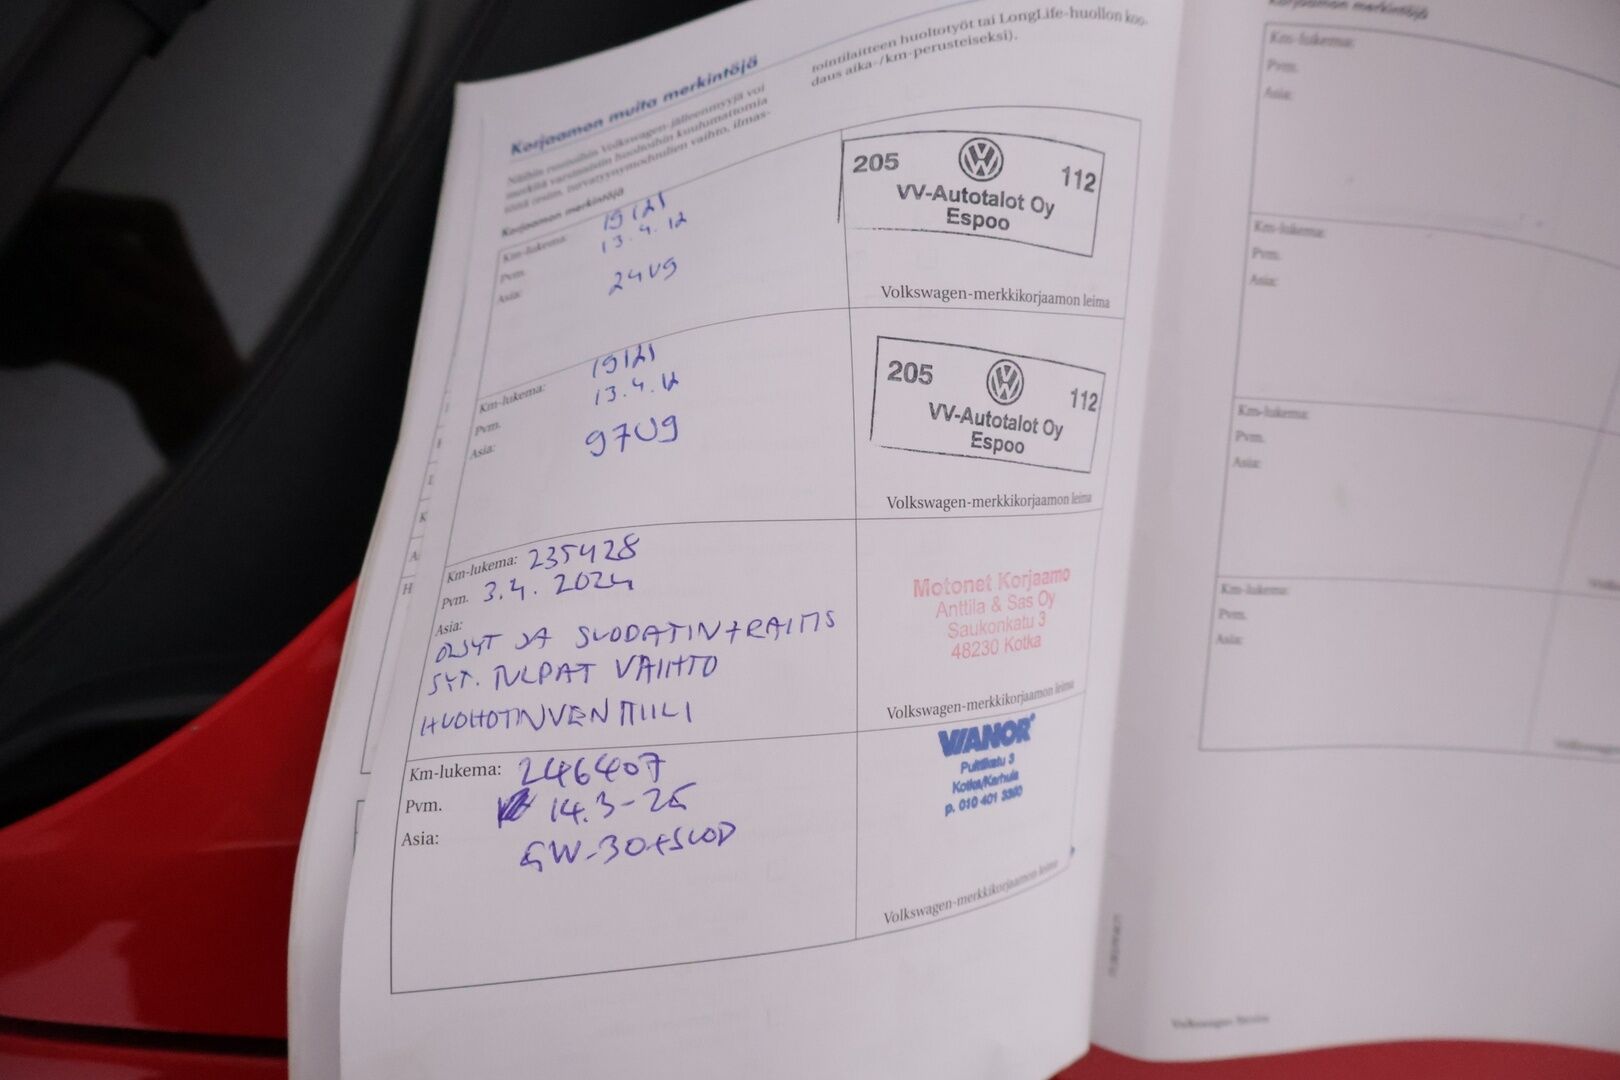 Korjaamon muita merkintöjä
Näihin ruutuihin Volkswagen-jälleenmyyjä voi
merkitä varsinaisiin huoltoihin kuulumattomia
töitä (esim. turvatyynymoduulien vaihto, ilmas-
tointilaitteen huoltotyöt tai LongLife-huollon koo-
daus aika-/km-perusteiseksi).
Korjaamon merkintöjä
Km-lukema: 19121
Pvm. 13.4.12
Asia: 24U9
205 112
VV-Autotalot Oy
Espoo
Volkswagen-merkkikorjaamon leima
Km-lukema: 19121
Pvm. 13.4.12
Asia: 97U9
205 112
VV-Autotalot Oy
Espoo
Volkswagen-merkkikorjaamon leima
Km-lukema: 235428
Pvm. 3.4.2024
Asia:
ÖLJYT JA SUODATIN + RAITIS
SYT. TULPAT VAIHTO
HUOHOTINVENTTIILI
Motonet Korjaamo
Anttila & Sas Oy
Saukonkatu 3
48230 Kotka
Volkswagen-merkkikorjaamon leima
Km-lukema: 246407
Pvm. 14.3-25
Asia: 5W-30+SUOD
VIANOR
Puitikatu 3
Kotka/Karhula
p. 010 401 3360
Volkswagen-merkkikorjaamon leima
Korjaamon merkintöjä
Km-lukema:
Pvm.
Asia:
Km-lukema:
Pvm.
Asia:
Km-lukema:
Pvm.
Asia:
Km-lukema:
Pvm.
Asia: